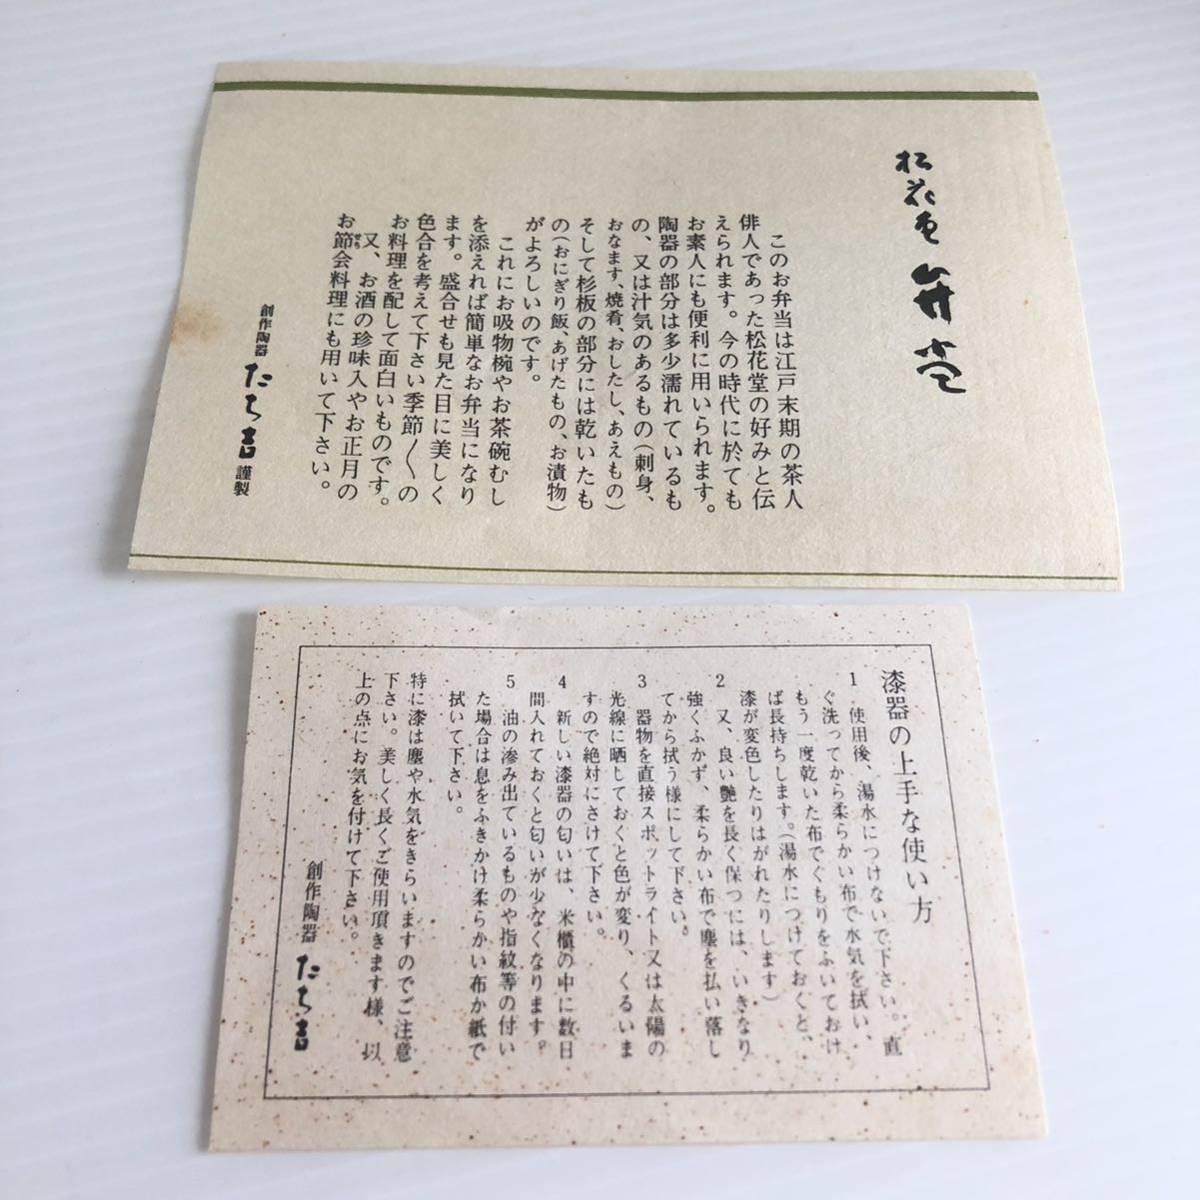 松花堂弁当
このお弁当は江戸末期の茶人
俳人であった松花堂の好みと伝
えられます。今の時代に於ても
お素人にも便利に用いられます。
陶器の部分は多少濡れているも
の、又は汁気のあるもの(刺身、
おなます、焼肴、おしたし、あえもの)
そして杉板の部分には乾いたも
の(おにぎり飯、あげたもの、お漬物)
がよろしいのです。
これにお吸物椀やお茶碗むし
を添えれば簡単なお弁当になり
ます。盛合せも見た目に美しく
色合を考えて下さい季節〳〵の
お料理を配して面白いものです。
又、お酒の珍味入やお正月の
お節会料理にも用いて下さい。
創作陶器 たち吉 謹製
漆器の上手な使い方
1 使用後、湯水につけないで下さい。直
ぐ洗ってから柔らかい布で水気を拭い、
もう一度乾いた布でくもりをふいておけ
ば長持ちします。(湯水につけておくと、
漆が変色したりはがれたりします)
2 又、良い艶を長く保つには、いきなり
強くふかず、柔らかい布で塵を払い落し
てから拭う様にして下さい。
3 器物を直接スポットライト又は太陽の
光線に晒しておくと色が変り、くるいま
すので絶対にさけて下さい。
4 新しい漆器の匂いは、米櫃の中に数日
間入れておくと匂いが少なくなります。
5 油の滲み出ているものや指紋等の付い
た場合は息をふきかけ柔らかい布か紙で
拭いて下さい。
特に漆は塵や水気をきらいますのでご注意
下さい。美しく長くご使用頂きます様、以
上の点にお気を付けて下さい。
創作陶器 たち吉